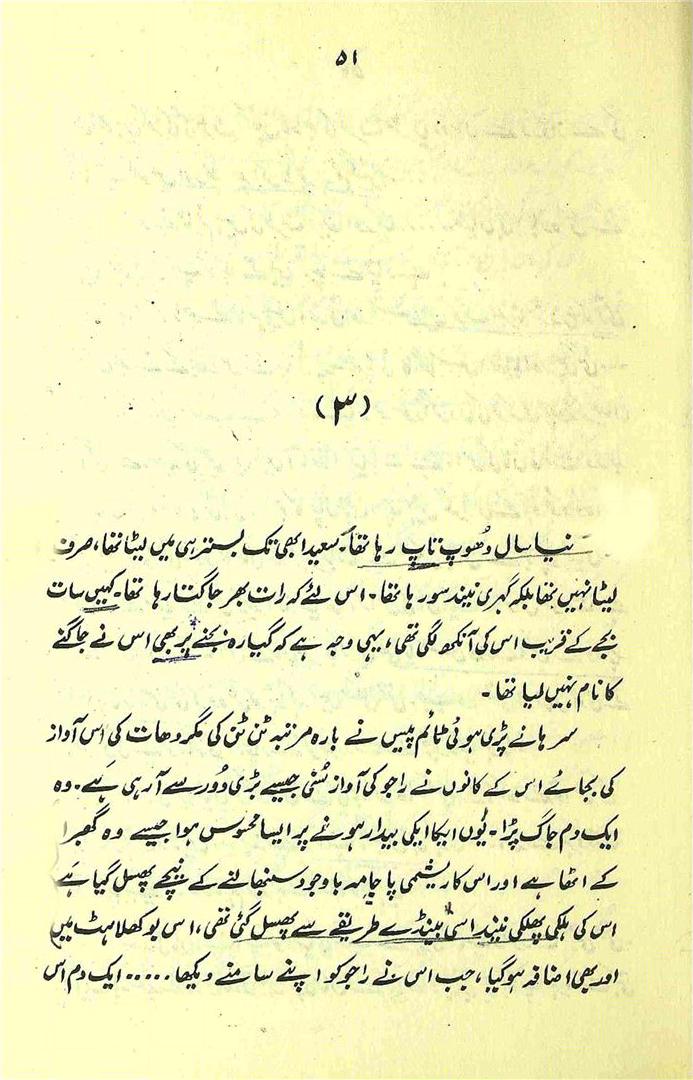 ۵۱
(۳)
نیا سال دھوپ تاپ رہا تھا۔ سعید ابھی تک بستر ہی میں لیٹا تھا، صرف
لیٹا نہیں تھا بلکہ گہری نیند سو رہا تھا۔ اس لئے کہ رات بھر جاگتا رہا تھا۔ کہیں سات
بجے کے قریب اس کی آنکھ لگی تھی، یہی وجہ ہے کہ گیارہ بجنے پر بھی اس نے جاگنے
کا نام نہیں لیا تھا۔
سرہانے پڑی ہوئی ٹائم پیس نے بارہ مرتبہ ٹن ٹن کی مگر دھات کی اس آواز
کی بجائے اس کے کانوں نے راجو کی آواز سُنی جیسے بڑی دُور سے آ رہی ہے۔ وہ
ایک دم جاگ پڑا۔ یُوں ایکا ایکی بیدار ہونے پر ایسا محسوس ہوا جیسے وہ گھبرا
کے اٹھا ہے اور اس کا ریشمی پاجامہ باوجود سنبھالنے کے نیچے پھسل گیا ہے
اس کی ہلکی پھلکی نیند اسی بینڈے طریقے سے پھسل گئی تھی، اس بوکھلاہٹ میں
اور بھی اضافہ ہو گیا، جب اس نے راجو کو اپنے سامنے دیکھا ..... ایک دم اس